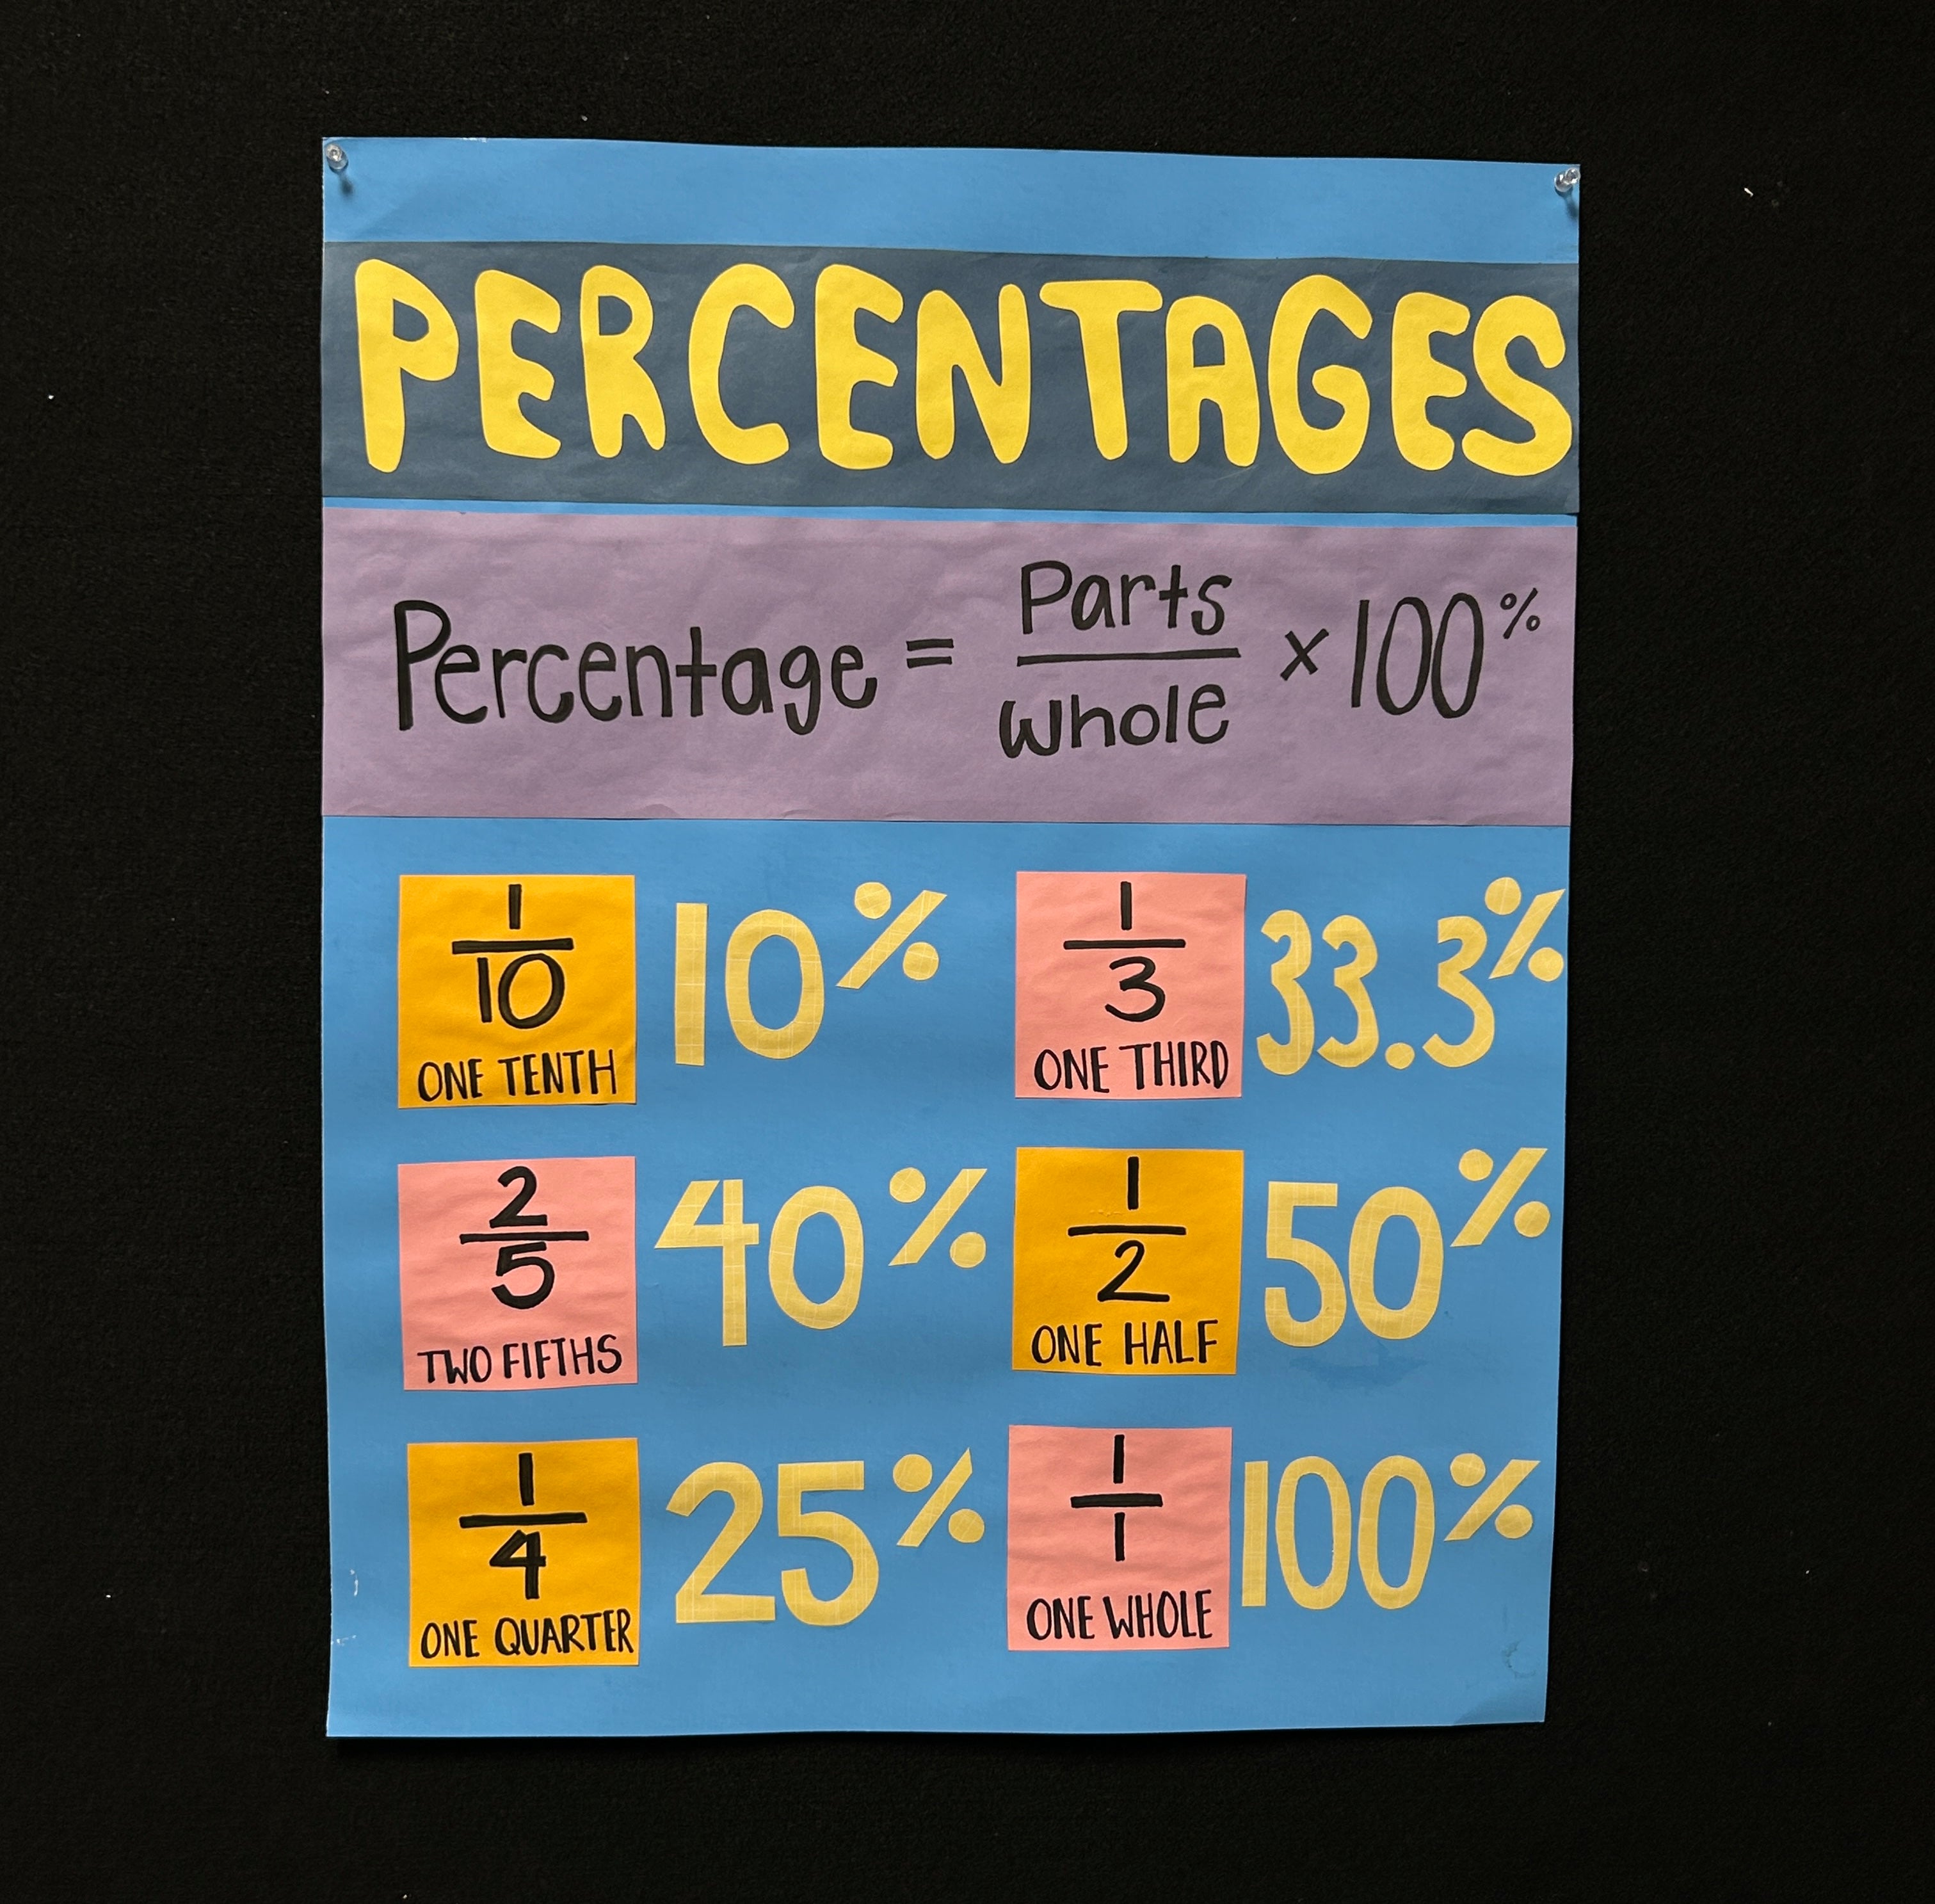 PERCENTAGES
Percentage = Parts/whole × 100%
1/10 ONE TENTH 10%
1/3 ONE THIRD 33.3%
2/5 TWO FIFTHS 40%
1/2 ONE HALF 50%
1/4 ONE QUARTER 25%
1/1 ONE WHOLE 100%